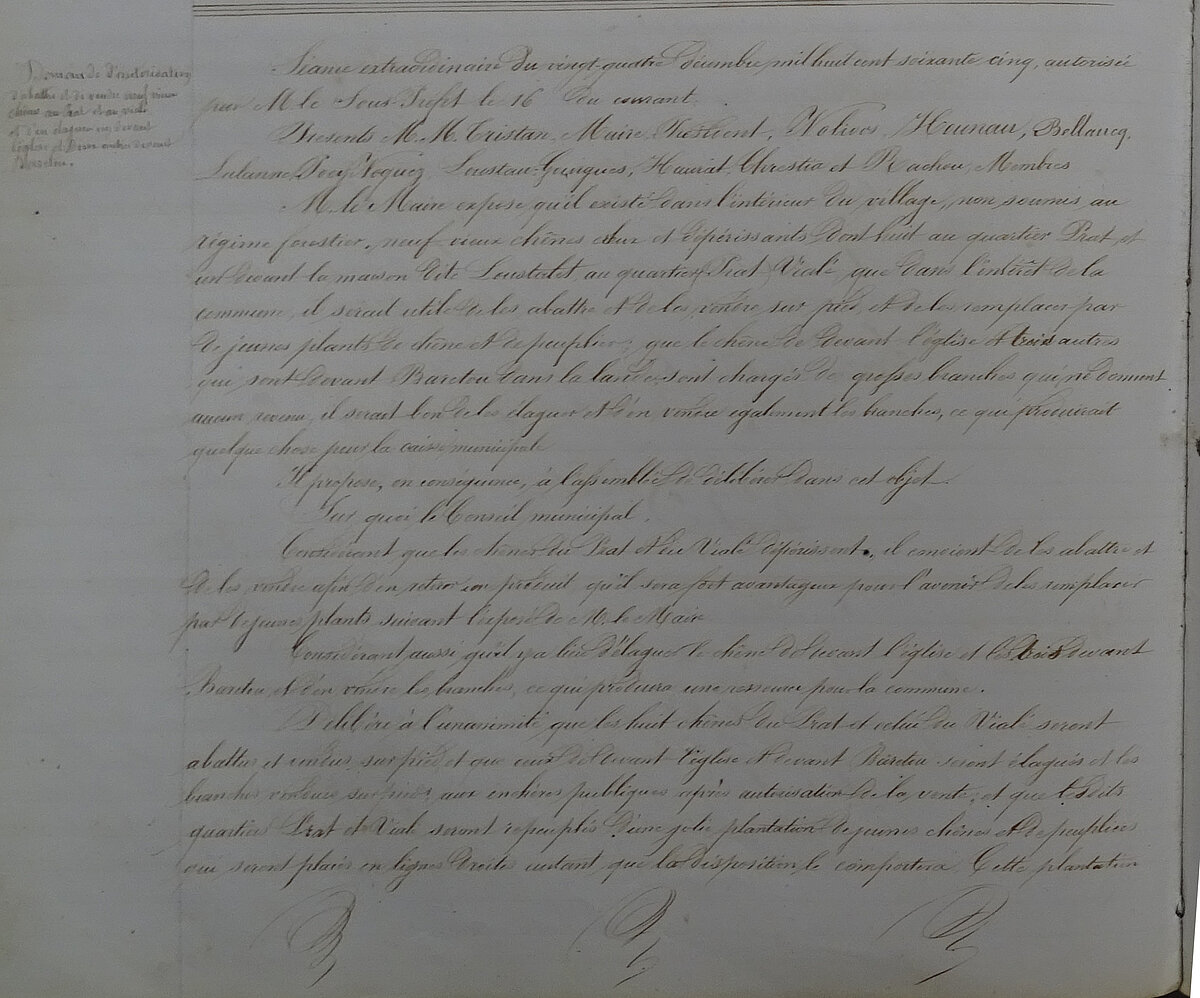 Demande d'autorisation
d'abattre et de vendre neuf vieux
chênes au Prat et au Vialé
et d'en élaguer un devant
l'église et trois autres devant
Baretou.
Séance extraordinaire du vingt-quatre Décembre mil huit cent soixante cinq, autorisée
par M. le Sous-Préfet le 16 du courant.
Présents M. M. Tristan, Maire, Président, Nolivos, Hounau, Bellaucq,
Lalanne, Noguez, Loustau, Haurat, Chrestia et Rachou, Membres
M. le Maire expose qu'il existe dans l'intérieur du village, non soumis au
régime forestier, neuf vieux chênes et dépérissants dont huit au quartier Prat, et
un devant la maison dite Loustalet au quartier Prat Vialé, que dans l'intérêt de la
commune, il serait utile de les abattre et de les vendre sur pied, et de les remplacer par
de jeunes plants de chêne et de peuplier; que le chêne de devant l'église et trois autres
qui sont devant Baretou dans la sont chargés de grosses branches qui ne donnent
aucun revenu, il serait bon de les élaguer et d'en vendre également les branches, ce qui produirait
quelque chose pour la caisse municipale
Il propose, en conséquence, à l'assemblée de délibérer dans cet objet.
Sur quoi le Conseil municipal,
Considérant que les chênes du Prat et du Vialé dépérissent, il convient de les abattre et
de les vendre afin d'en retirer un produit qu'il sera fort avantageux pour l'avenir de les remplacer
par de jeunes plants suivant l'exposé de M. le Maire
Considérant aussi qu'il y a lieu d'élaguer le chêne de devant l'église et les trois devant
Baretou et d'en vendre les branches, ce qui produira une ressource pour la commune.
Délibère à l'unanimité que les huit chênes du Prat et celui du Vialé seront
abattus et vendus sur pied et que ceux de devant l'église et devant Baretou seront élagués et les
branches vendues sur pied, aux enchères publiques après autorisation de la vente, et que lesdits
quartiers Prat et Vialé seront repeuplés d'une jolie plantation de jeunes chênes et de peupliers
qui seront placés en lignes droites autant que la disposition le comportera. Cette plantation